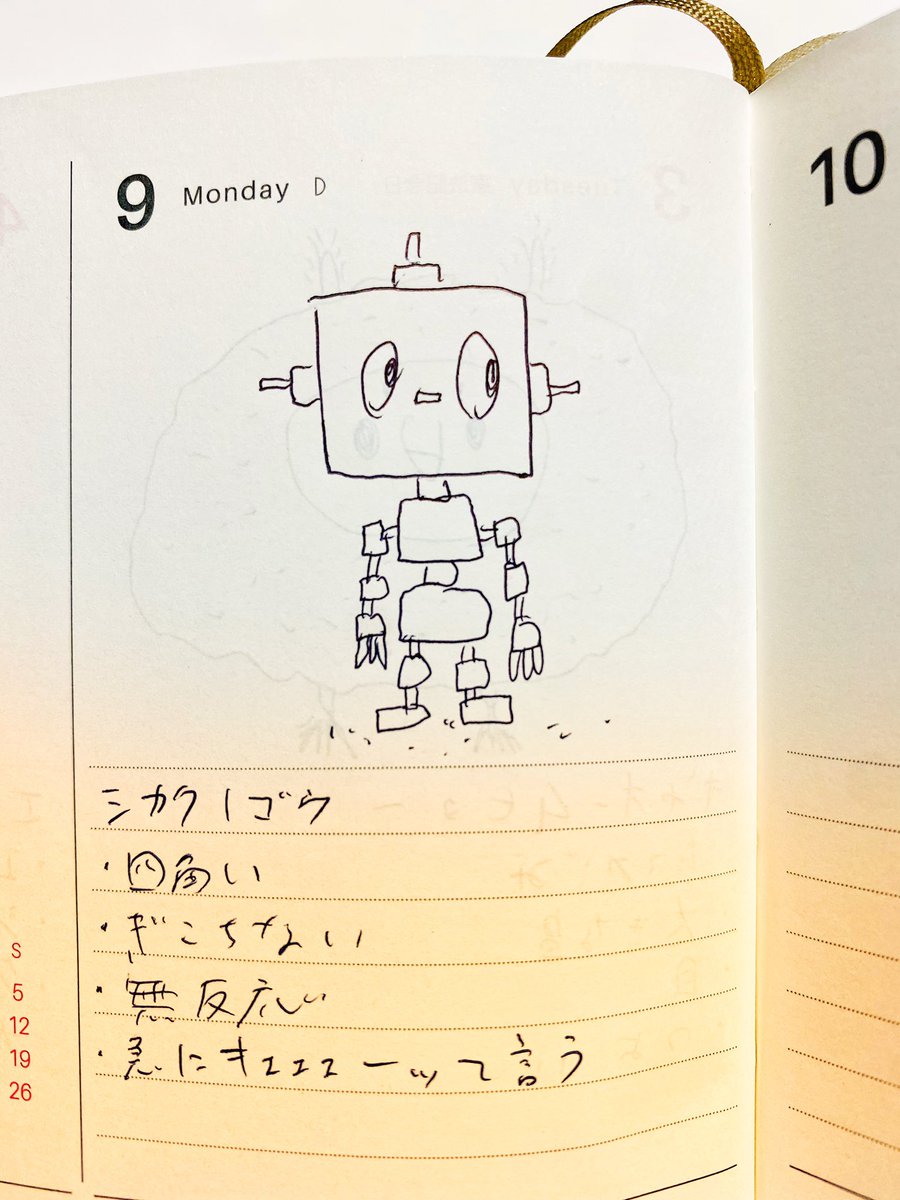 9 Monday D
10
シカク1ゴウ
・四角い
・ぎこちない
・無反応
・急にキエエエーッって言う
S
5
12
19
26